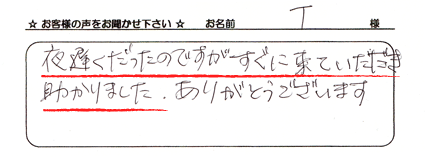 ☆ お客様の声をお聞かせ下さい ☆ お名前 T 様
夜遅くだったのですがすぐに来ていただき
助かりました。ありがとうございます